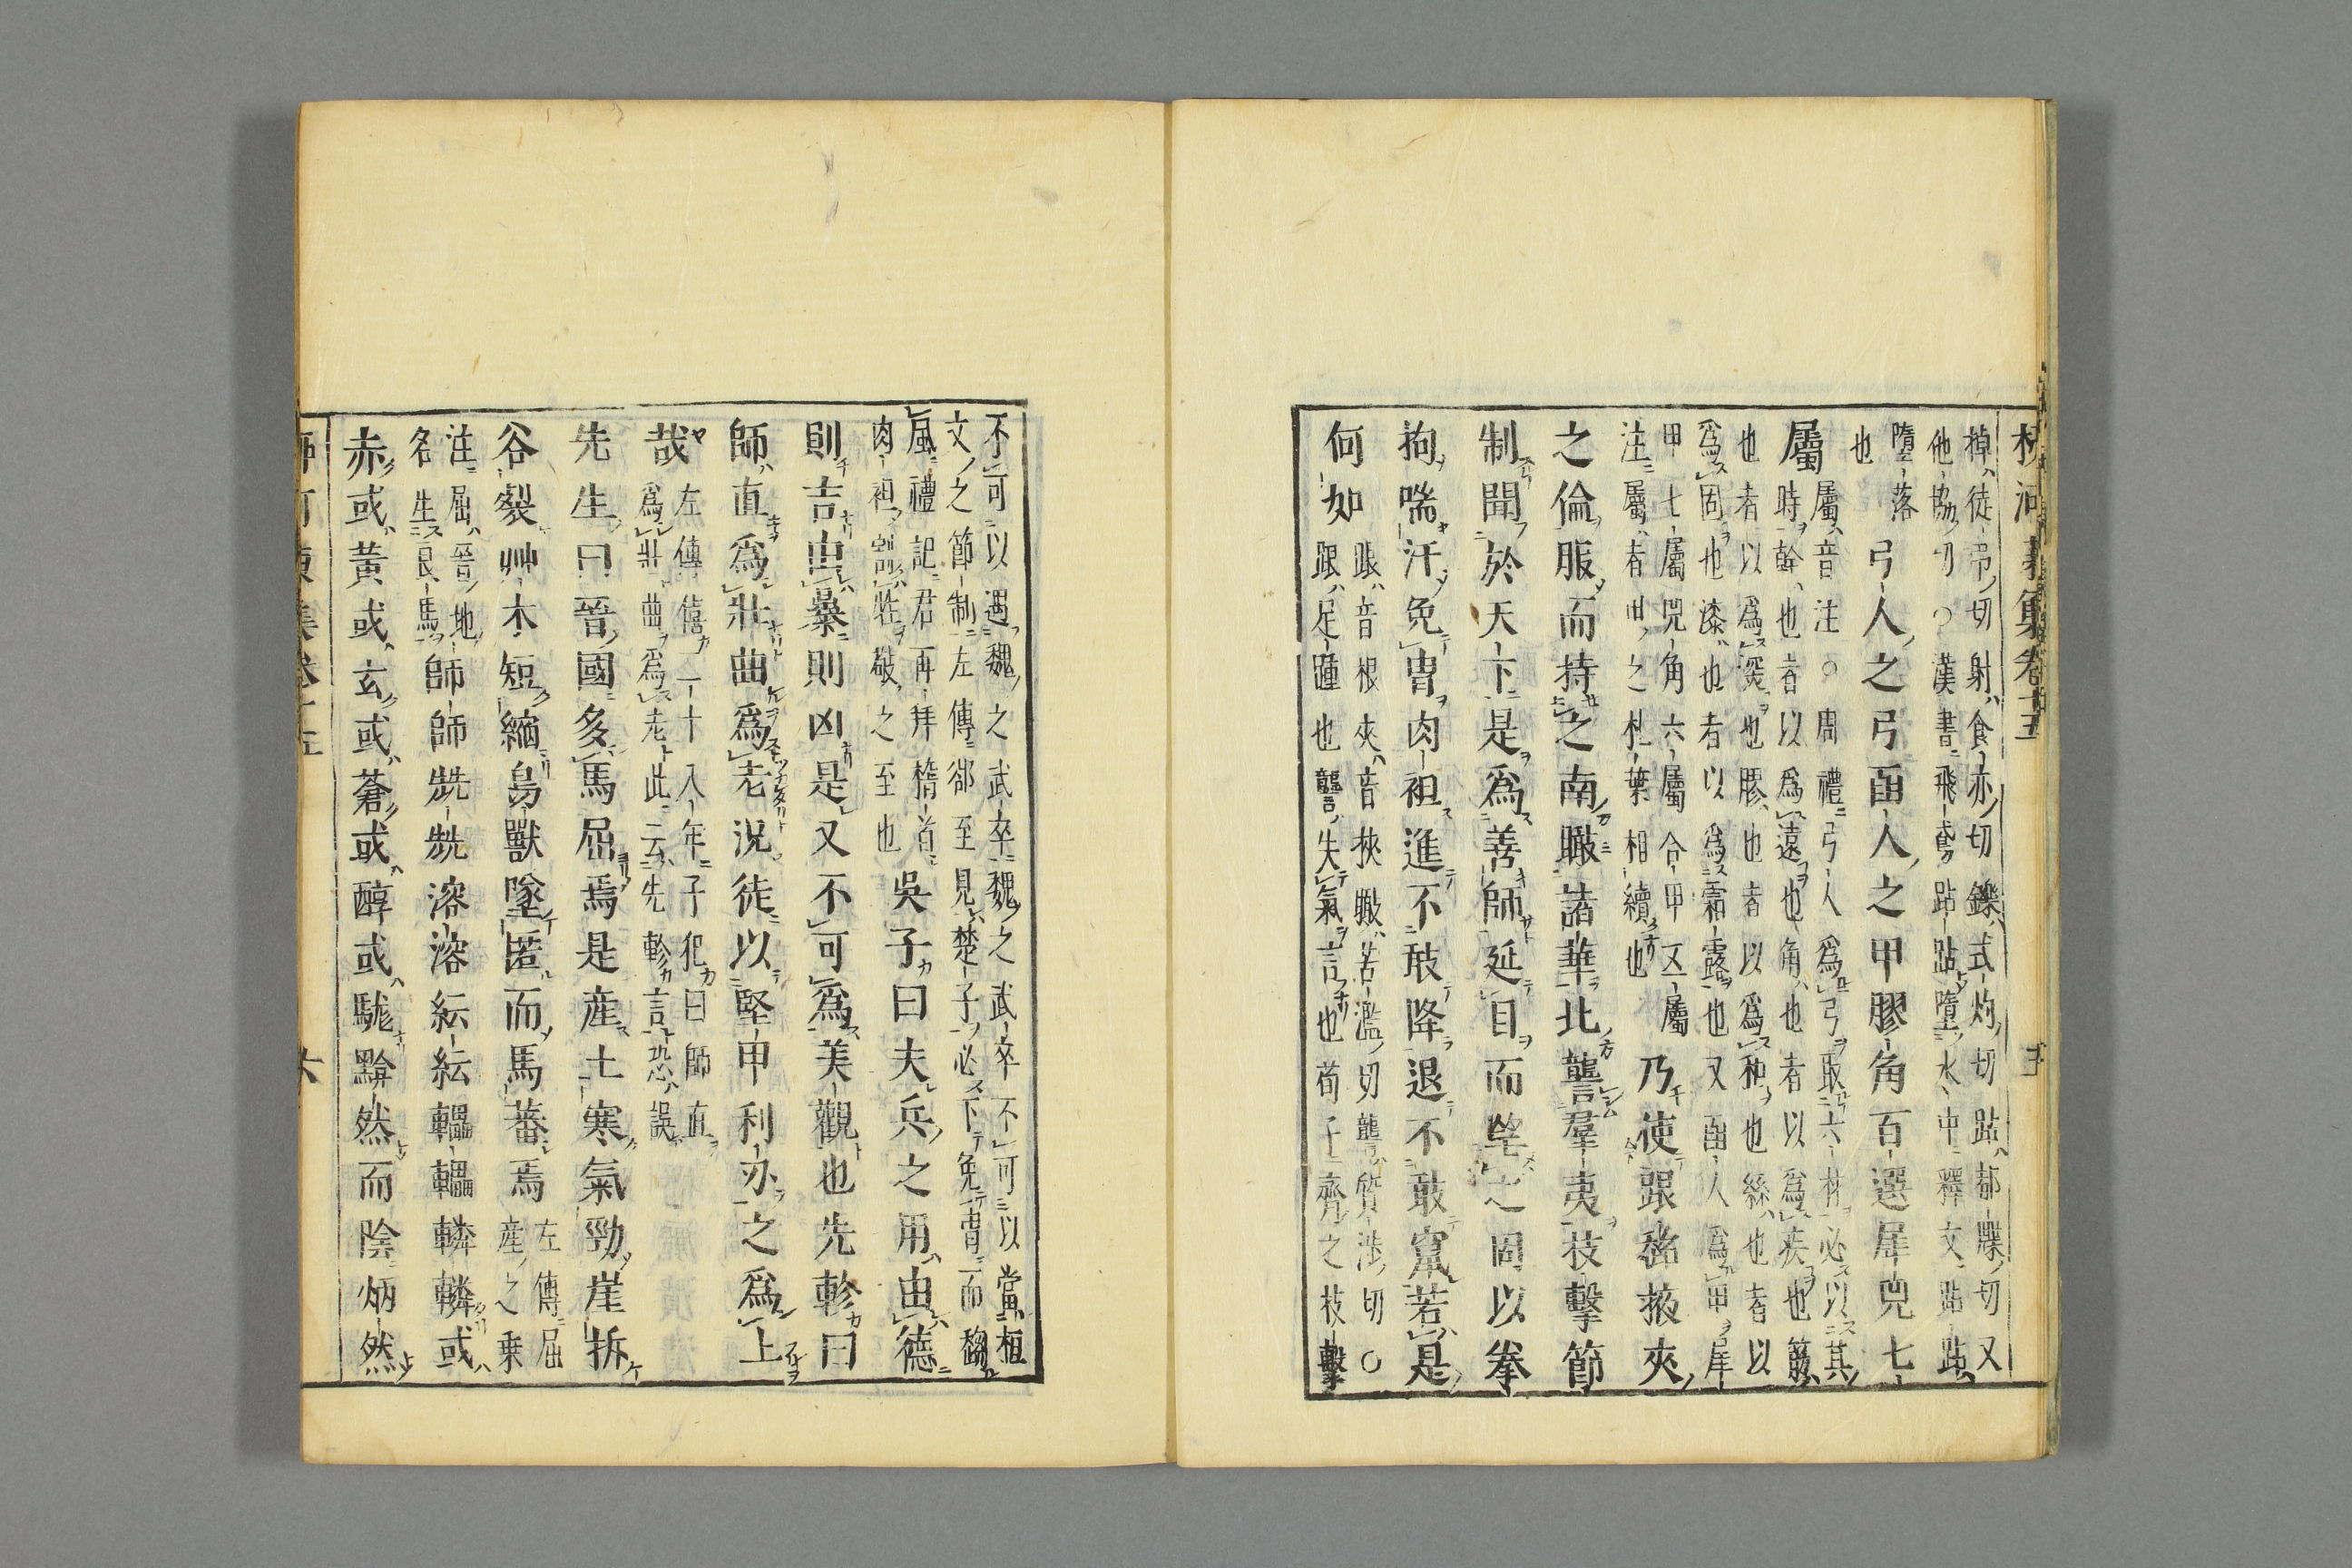 棹徒弔切射食亦切鑠式灼切跕都牒切又
他協切○漢書飛鳶跕跕墮水中釋文跕跕
墮落
也
弓人之弓函人之甲膠角百選犀兕七
屬
屬音注○周禮弓人爲弓取六材必以其
時幹也者以爲遠也角也者以爲疾也筋
也者以爲深也膠也者以爲和也絲也者以
爲固也漆也者以爲霜露也又函人爲甲犀
甲七屬兕角六屬合甲五屬
注屬者丗之札葉相續也
乃使跟超掖夾
之倫服而持之南瞰諸華北讋羣夷技擊節
制聞於天下是爲善師延目而望之固以拳
拘喘汗免冑肉袒進不敢降退不敢竄若是
何如
跟音根夾音挾瞰苦濫切讋質涉切○
跟足踵也讋失氣言也荀子齊之技擊
不可以遇魏之武卒魏之武卒不可以當桓
文之節制左傳郤至見楚子必下免冑而趨
風禮記君再拜稽首
肉袒割牲敬之至也
吳子曰夫兵之用由德
則吉由暴則凶是又不可爲美觀也先軫曰
師直爲壯曲爲老況徒以堅甲利刃之爲上
哉
左傳僖二十八年子犯曰師直
爲壯曲爲老此云先軫言恐誤
先生曰晉國多馬屈焉是産土寒氣勁崖拆
谷裂艸木短縮鳥獸墜匿而馬蕃焉
左傳屈
産之乗
注屈晉地
名生良馬
師師兟兟溶溶紜紜轀轀轔轔或
赤或黃或玄或蒼或醇或駹黭然而陰炳然